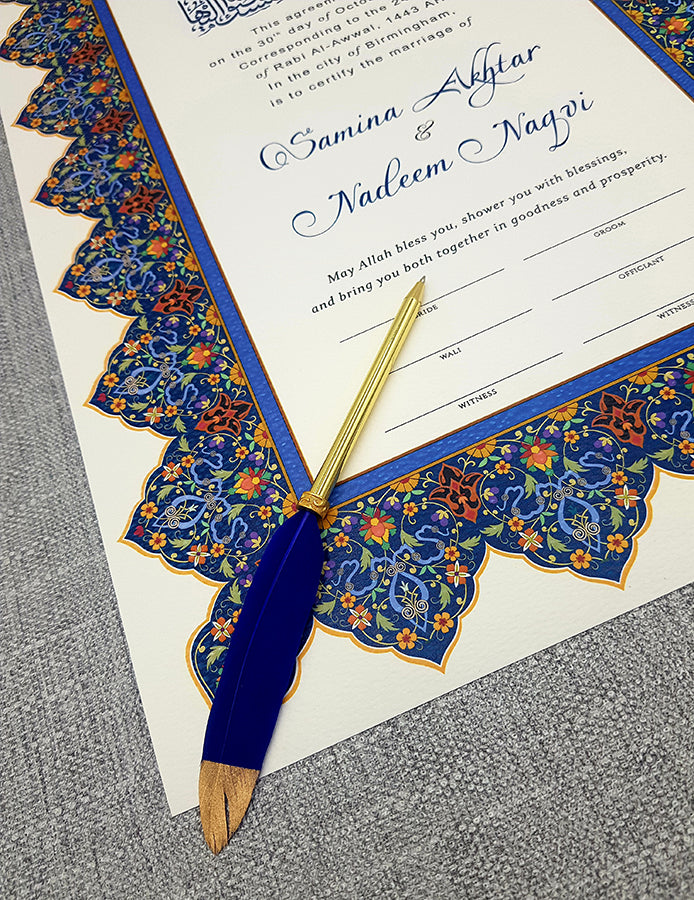 This
on the 30th day of
Corresponding to the
of Rabi Al-Awwal, 1443
In the city of Birmingham,
is to certify the marriage of
Samina Akhtar
&
Nadeem Naqvi
May Allah bless you, shower you with blessings,
and bring you both together in goodness and prosperity.
BRIDE
GROOM
WALI
OFFICIANT
WITNESS
WITNESS